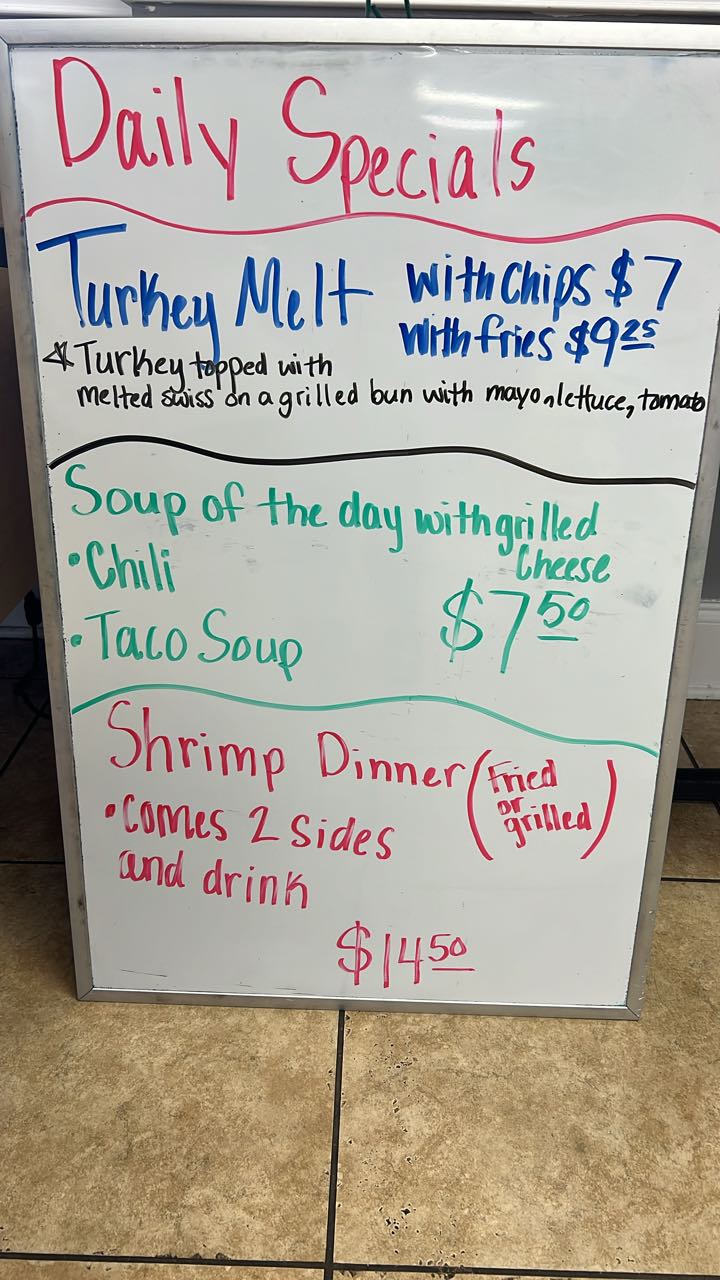 Daily Specials
Turkey Melt
with chips $7
with fries $9 25
* Turkey topped with
melted swiss on a grilled bun with mayo, lettuce, tomato
Soup of the day with grilled
Cheese
• Chili
$7 50
• Taco Soup
Shrimp Dinner (Fried
or
grilled)
• Comes 2 sides
and drink
$14 50